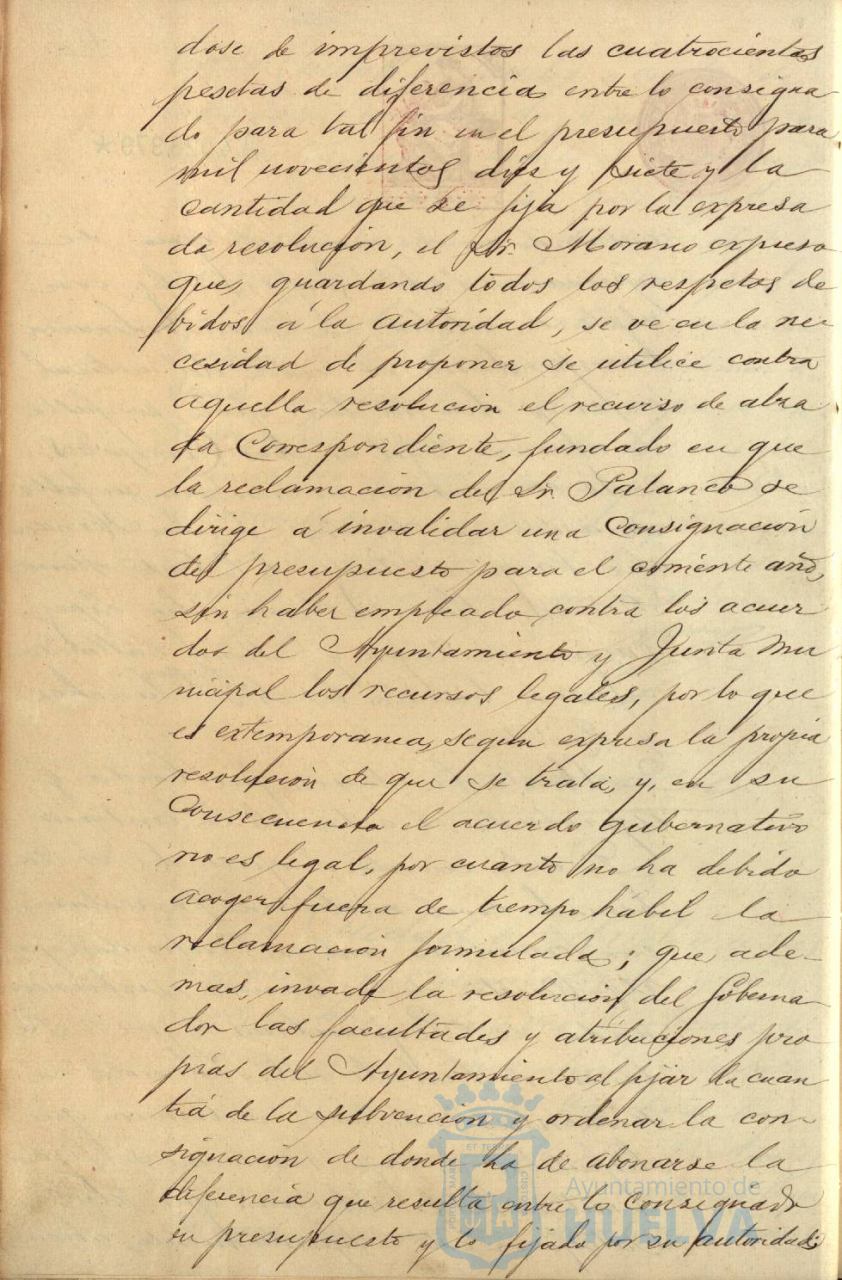 dose de imprevistos las cuatrocientas
pesetas de diferencia entre lo consigna-
do para tal fin en el presupuesto para
mil novecientos diez y siete y la
cantidad que se fija por la expresa
da resolución, el Sr. Morano expuso
que, guardando todos los respetos de
bidos á la autoridad, se ve en la ne-
cesidad de proponer se utilice contra
aquella resolución el recurso de alza
da Correspondiente, fundado en que
la reclamación del Sr. Palanco se
dirige á invalidar una Consignación
del presupuesto para el corriente año,
sin haber empleado contra los acuer
dos del Ayuntamiento y Junta mu
nicipal los recursos legales, por lo que
es extemporanea, segun expresa la propia
resolución de que se trata, y, en su
Consecuencia el acuerdo gubernativo
no es legal, por cuanto no ha debido
acoger fuera de tiempo habil la
reclamación formulada; que, ade-
mas, invade la resolución del Goberna-
dor las facultades y atribuciones pro
pias del Ayuntamiento al fijar la cuan
tiá de la subvención y ordenar la con-
signación de donde ha de abonarse la
diferencia que resulta entre lo consignado
en presupuesto y lo fijado por su autoridad;
Ayuntamiento de
HUELVA